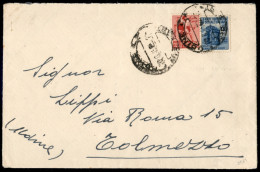 Signor
Lippi
Via Roma 15
(Udine)
Tolmezzo